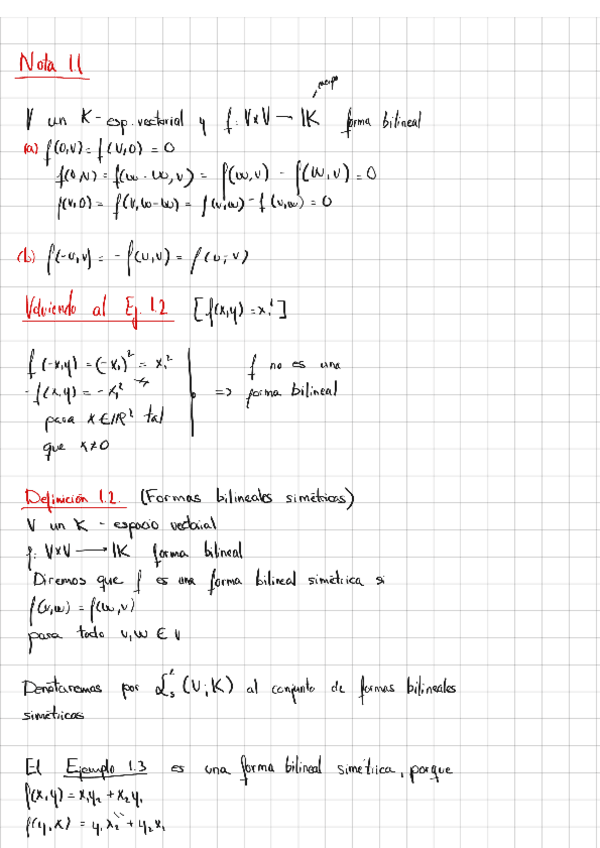 Nota 1.1
cuerpo
V un K-esp. vectorial y f: V×V → K forma bilineal
(a) f(0,v) = f(v,0) = 0
f(0,v) = f(w-w,v) = f(w,v) - f(w,v) = 0
f(v,0) = f(v,w-w) = f(v,w) - f(v,w) = 0
(b) f(-u,v) = -f(u,v) = f(u,-v)
Volviendo al Ej. 1.2 [f(x,y) = x₁²]
f(-x,y) = (-x₁)² = x₁² f no es una
-f(x,y) = -x₁² => forma bilineal
para x∈ℝ² tal
que x≠0
Definición 1.2. (Formas bilineales simétricas)
V un K-espacio vectorial
f: V×V → K forma bilineal
Diremos que f es una forma bilineal simétrica si
f(v,w) = f(w,v)
para todo v,w ∈ V
Denotaremos por ℒₛ²(V;K) al conjunto de formas bilineales
simétricas
El Ejemplo 1.3 es una forma bilineal simétrica, porque
f(x,y) = x₁y₂ + x₂y₁
f(y,x) = y₁x₂ + y₂x₁